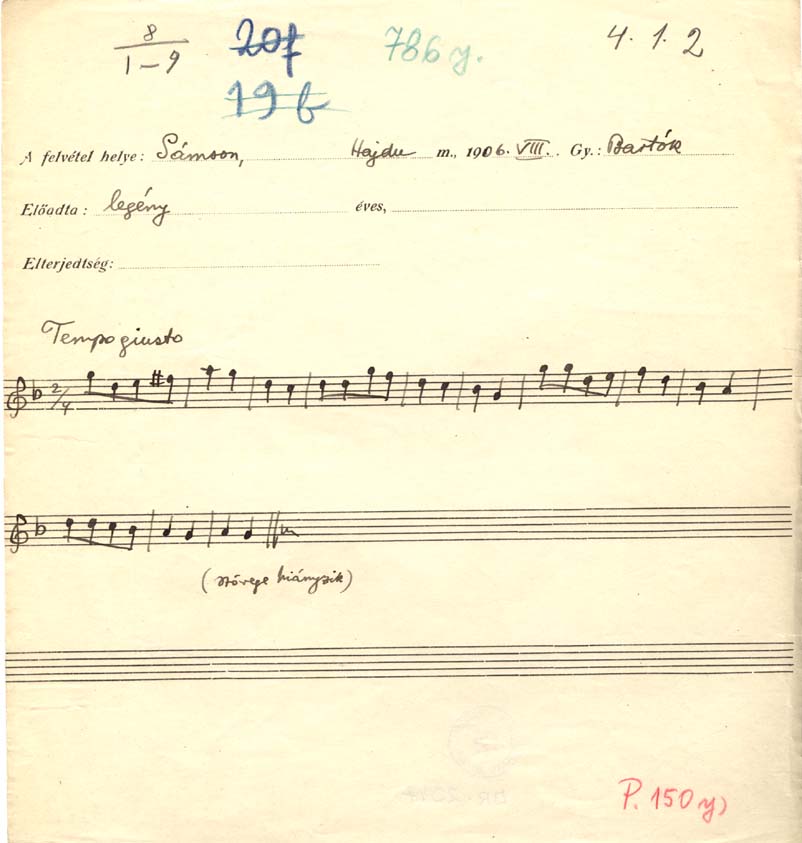 8 20f 786 y. 4. 1. 2
1–9 19 b
A felvétel helye: Sámson, Hajdu m., 1906. VIII. . Gy.: Bartók
Előadta: legény éves,
Elterjedtség:
Tempo giusto
2/4
(szövege hiányzik)
P. 150 y)